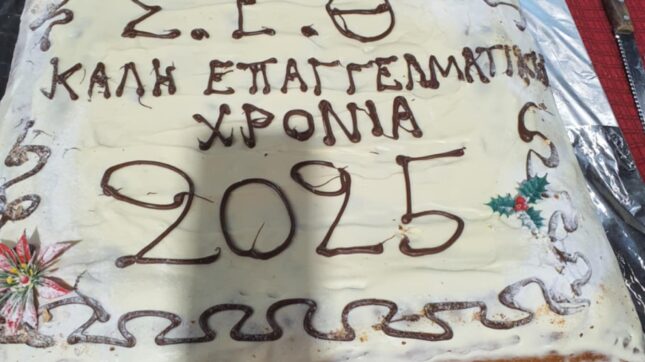 Σ.Ι.Θ
ΚΑΛΗ ΕΠΑΓΓΕΛΜΑΤΙΚΗ
ΧΡΟΝΙΑ
2025